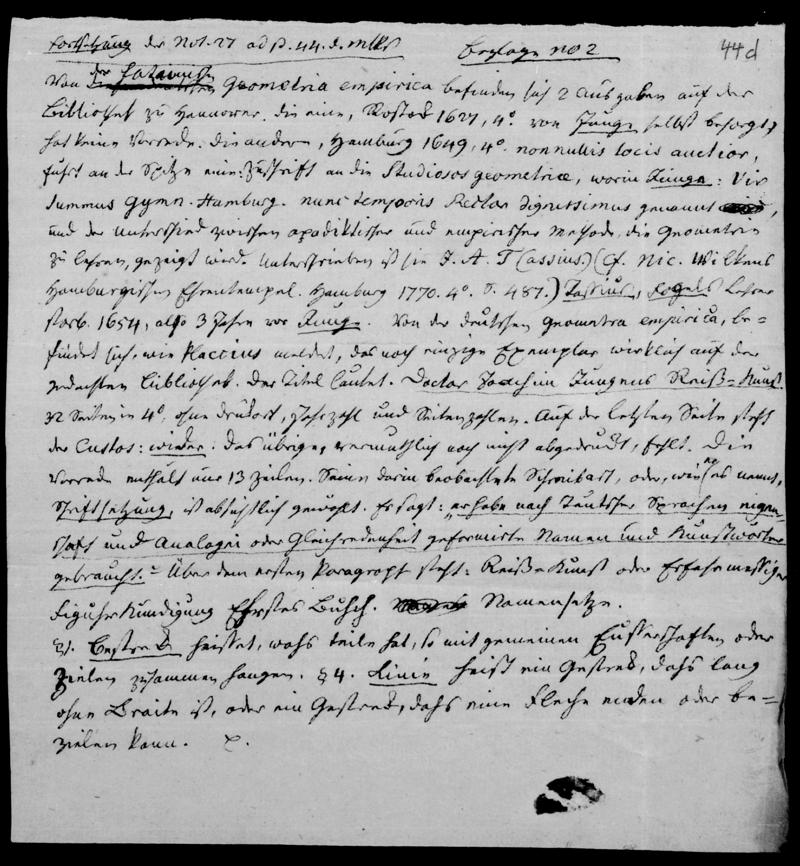 Fortsetzung der Not. 27 ad p. 44. d. Mscs Beylage no 2 44d
Von der Lateinischen Geometria empirica befinden sich 2 Ausgaben auf der
Bibliothek zu Hannover. die eine, Rostock 1627, 4°. von Junge selbst besorgt,
hat keine Vorrede. die andere, Hamburg 1649, 4°. nonnullis locis auctior,
führt an der Spitze eine Zuschrift an die Studiosos geometriae, worin Junge: Vir
summus Gymn. Hamburg. nunc temporis Rector dignissimus genannt,
und der Unterschied zwischen apodiktischer und empirischer Methode, die Geometrie
zu lehren, gezeigt wird. Unterschrieben ist sie J. A. T(assius) (Cf. Nic. Wilkens
Hamburgischen Ehrentempel. Hamburg 1770. 4°. S. 487.) Tassius, Vogels Lehrer
starb. 1654, also 3 Jahre vor Junge. Von der deutschen Geometra empirica, be=
findet sich, wie Placcius meldet, das noch einzige Exemplar wirklich auf der
gedachten Bibliothek. Der Titel lautet. Doctor Joachim Jungens Reiß=Kunst.
32 Seiten in 4°, ohne Druckort, Jahrzahl und Seitenzahlen. Auf der letzten Seite steht
der Custos: wieder: das übrige, vermuthlich noch nicht abgedruckt, fehlt. Die
Vorrede enthält nur 13 Zeilen. Seine darin beobachtete Schreibart, oder, wie er es nennt,
Schriftsetzung, ist absichtlich gewählt. Er sagt: "er habe nach Teutscher Sprachen eigen=
schaft und Analogei oder Gleichredenheit geformirte Namen und Kunstwörter
gebraucht." Über dem ersten Paragraph steht: Reiß=Kunst oder Erfahrmessige
Figuhrkündigung Ehrstes Buhch. Namensetze.
§1. Gestrek heisset, wahs teile hat, so mit gemeinen Eusserschaften oder
Zielen zusammen hangen. §4. Linie heist ein Gestrek, dahs lang
ohne Braite ist, oder ein Gestrek, dahs eine Fleche enden oder be=
zielen kann.